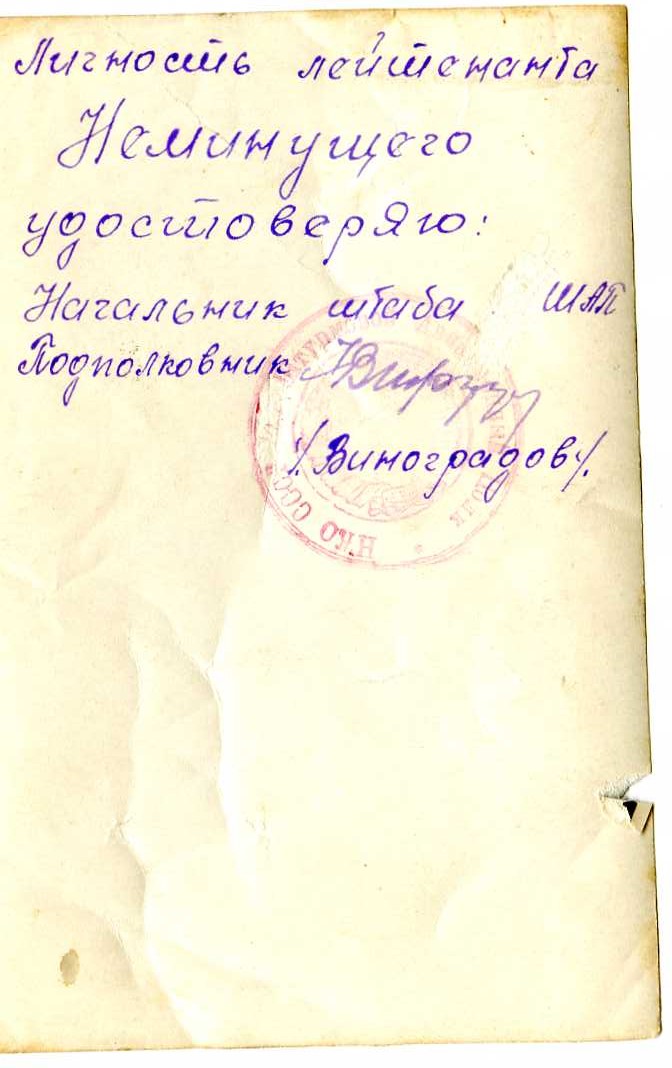 Личность лейтенанта
Неминущего
удостоверяю:
Начальник штаба ШАП
Подполковник
/Виноградов/.
НКО СССР